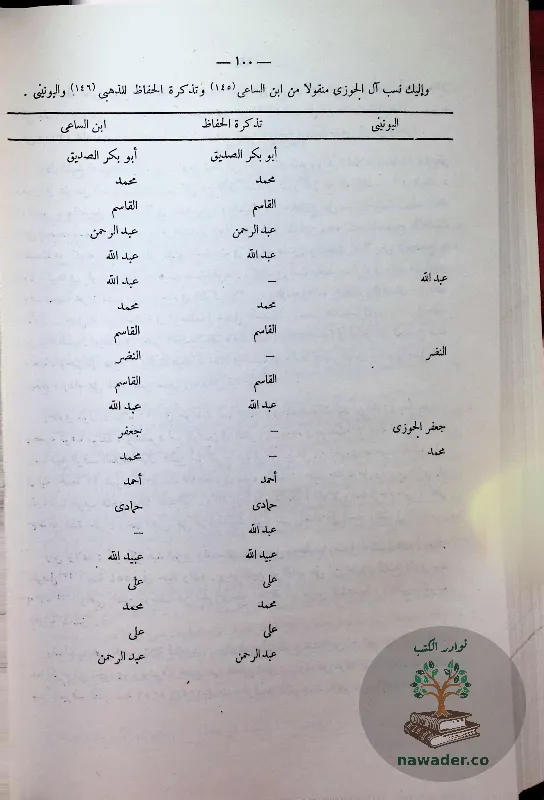 — ١٠٠ —
وإليك نسب آل الجوزى منقولا من ابن الساعى (١٤٥) وتذكرة الحفاظ للذهبى (١٤٦) واليونينى .
اليونينى تذكرة الحفاظ ابن الساعى
أبو بكر الصديق أبو بكر الصديق
محمد محمد
القاسم القاسم
عبد الرحمن عبد الرحمن
عبد الله عبد الله
عبد الله — عبد الله
محمد محمد
القاسم القاسم
النضر — النضر
القاسم القاسم
عبد الله عبد الله
جعفر الجوزى — جعفر
محمد — محمد
أحمد أحمد
حمادى حمادى
عبد الله —
عبيد الله عبيد الله
على على
محمد محمد
على على
عبد الرحمن عبد الرحمن
نوادر الكتب
nawader.co